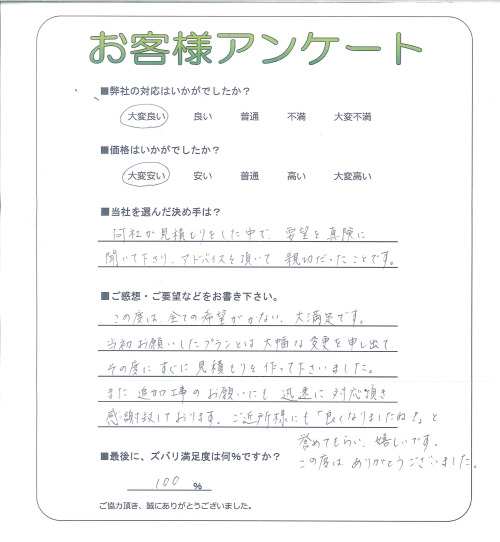 お客様アンケート
■弊社の対応はいかがでしたか?
大変良い 良い 普通 不満 大変不満
■価格はいかがでしたか?
大変安い 安い 普通 高い 大変高い
■当社を選んだ決め手は?
何社か見積もりをした中で、要望を真険に
聞いて下さり、アドバイスを頂いて 親切だったことです。
■ご感想・ご要望などをお書き下さい。
この度は、全ての希望がかない、大満足です。
当初お願いしたプランとは大幅な変更を申し出て、
その度にすぐに見積もりを作って下さいました。
また追加工事のお願いにも 迅速に対応頂き
感謝致しております。ご近所様にも「良くなりましたね!」と
誉めてもらい、嬉しいです。
この度は ありがとうございました。
■最後に、ズバリ満足度は何%ですか?
100 %
ご協力頂き、誠にありがとうございました。